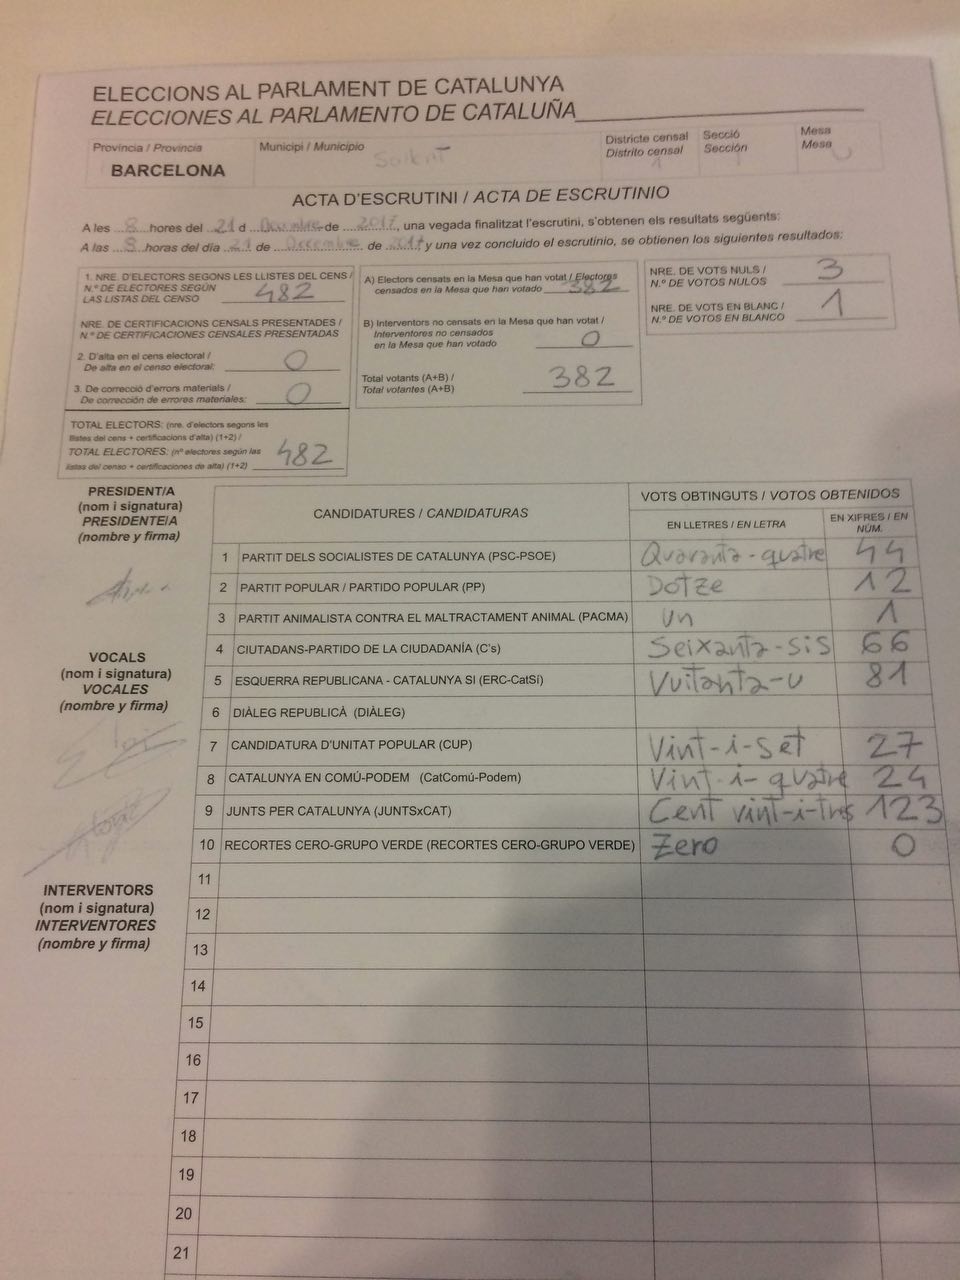 ELECCIONS AL PARLAMENT DE CATALUNYA
ELECCIONES AL PARLAMENTO DE CATALUÑA
Província / Provincia
BARCELONA
Municipi / Municipio
Districte censal
Distrito censal
1
Secció
Sección
Mesa
Mesa
U
ACTA D'ESCRUTINI / ACTA DE ESCRUTINIO
A les 8 hores del 21 d Desembre de 2017, una vegada finalitzat l'escrutini, s'obtenen els resultats següents:
A las 8 horas del día 21 de Desembre de 2017 y una vez concluido el escrutinio, se obtienen los siguientes resultados:
1. NRE. D'ELECTORS SEGONS LES LLISTES DEL CENS /
N.º DE ELECTORES SEGÚN
LAS LISTAS DEL CENSO 482
NRE. DE CERTIFICACIONS CENSALS PRESENTADES /
N.º DE CERTIFICACIONES CENSALES PRESENTADAS
2. D'alta en el cens electoral /
De alta en el censo electoral: 0
3. De correcció d'errors materials /
De corrección de errores materiales: 0
TOTAL ELECTORS: (nre. d'electors segons les
llistes del cens + certificacions d'alta) (1+2) /
TOTAL ELECTORES: (nº electores según las
listas del censo + certificaciones de alta) (1+2) 482
A) Electors censats en la Mesa que han votat / Electores
censados en la Mesa que han votado 382
B) Interventors no censats en la Mesa que han votat /
Interventores no censados
en la Mesa que han votado 0
Total votants (A+B) /
Total votantes (A+B) 382
NRE. DE VOTS NULS /
N.º DE VOTOS NULOS 3
NRE. DE VOTS EN BLANC /
N.º DE VOTOS EN BLANCO 1
PRESIDENT/A
(nom i signatura)
PRESIDENTE/A
(nombre y firma)
VOCALS
(nom i signatura)
VOCALES
(nombre y firma)
INTERVENTORS
(nom i signatura)
INTERVENTORES
(nombre y firma)
CANDIDATURES / CANDIDATURAS
VOTS OBTINGUTS / VOTOS OBTENIDOS
EN LLETRES / EN LETRA
EN XIFRES / EN NÚM.
1 PARTIT DELS SOCIALISTES DE CATALUNYA (PSC-PSOE) Quaranta-quatre 44
2 PARTIT POPULAR / PARTIDO POPULAR (PP) Dotze 12
3 PARTIT ANIMALISTA CONTRA EL MALTRACTAMENT ANIMAL (PACMA) Un 1
4 CIUTADANS-PARTIDO DE LA CIUDADANÍA (C's) Seixanta-sis 66
5 ESQUERRA REPUBLICANA - CATALUNYA SI (ERC-CatSí) Vuitanta-u 81
6 DIÀLEG REPUBLICÀ (DIÀLEG)
7 CANDIDATURA D'UNITAT POPULAR (CUP) Vint-i-set 27
8 CATALUNYA EN COMÚ-PODEM (CatComú-Podem) Vint-i-quatre 24
9 JUNTS PER CATALUNYA (JUNTSxCAT) Cent vint-i-tres 123
10 RECORTES CERO-GRUPO VERDE (RECORTES CERO-GRUPO VERDE) Zero 0
11
12
13
14
15
16
17
18
19
20
21